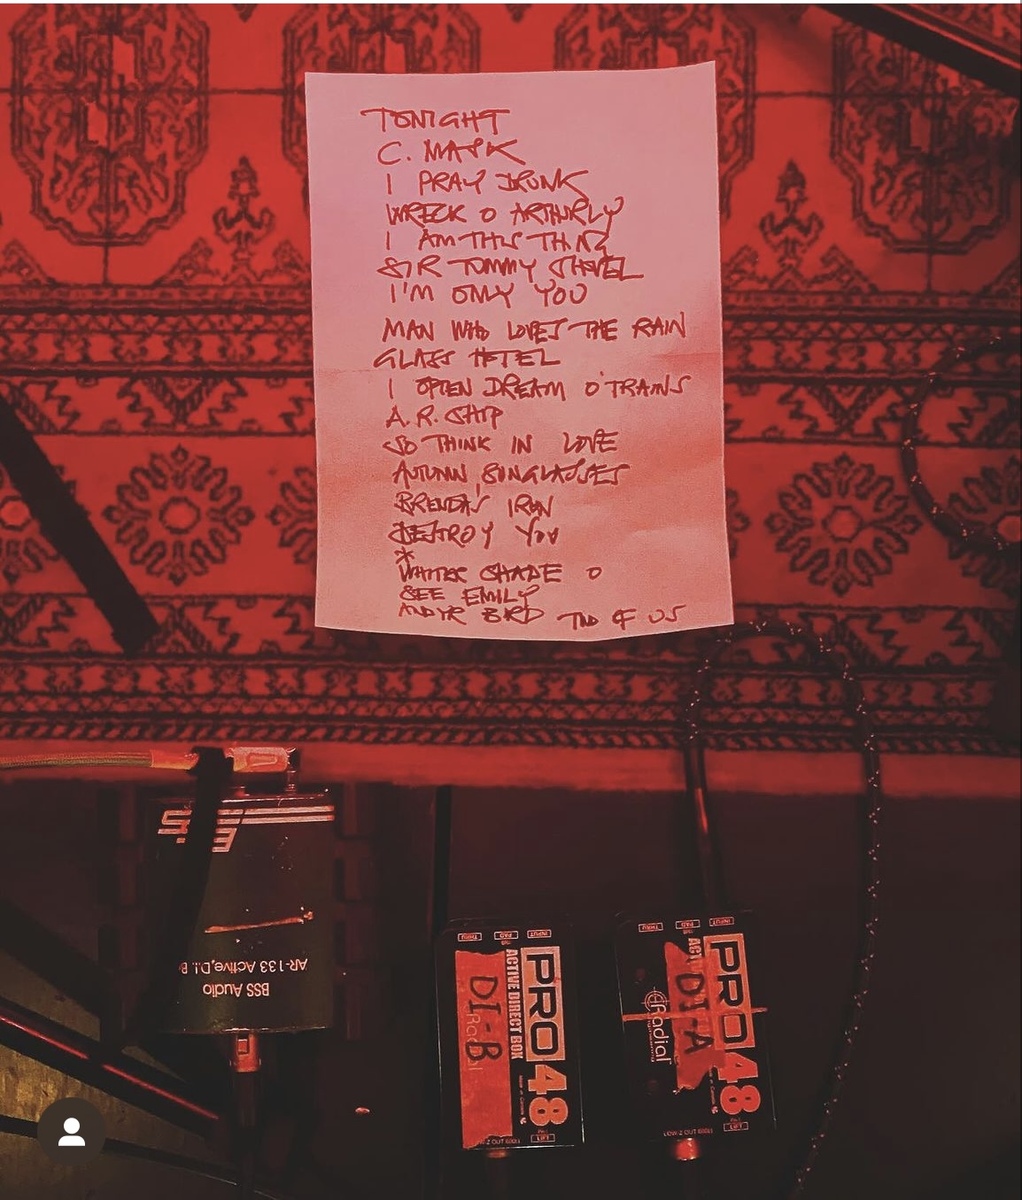 TONIGHT
C. MASK
I PRAY DRUNK
WRECK O ARTHURLY
I AM THIS THING
SIR TOMMY SHOVEL
I'M ONLY YOU
MAN WHO LOVES THE RAIN
GLASS HOTEL
I OFTEN DREAM O' TRAINS
A.R. SHIP
SO THINK IN LOVE
AUTUMN SUNGLASSES
BRENDA'S IRON
DESTROY YOU
*
WHITER SHADE O
SEE EMILY
AND YR BIRD TWO OF US
BSS Audio
AR-133 Active D.I. B
PRO48
ACTIVE DIRECT BOX
DI-B
INPUT
PAD
THRU
PRO48
DI-A
Radial
INPUT
PAD
THRU